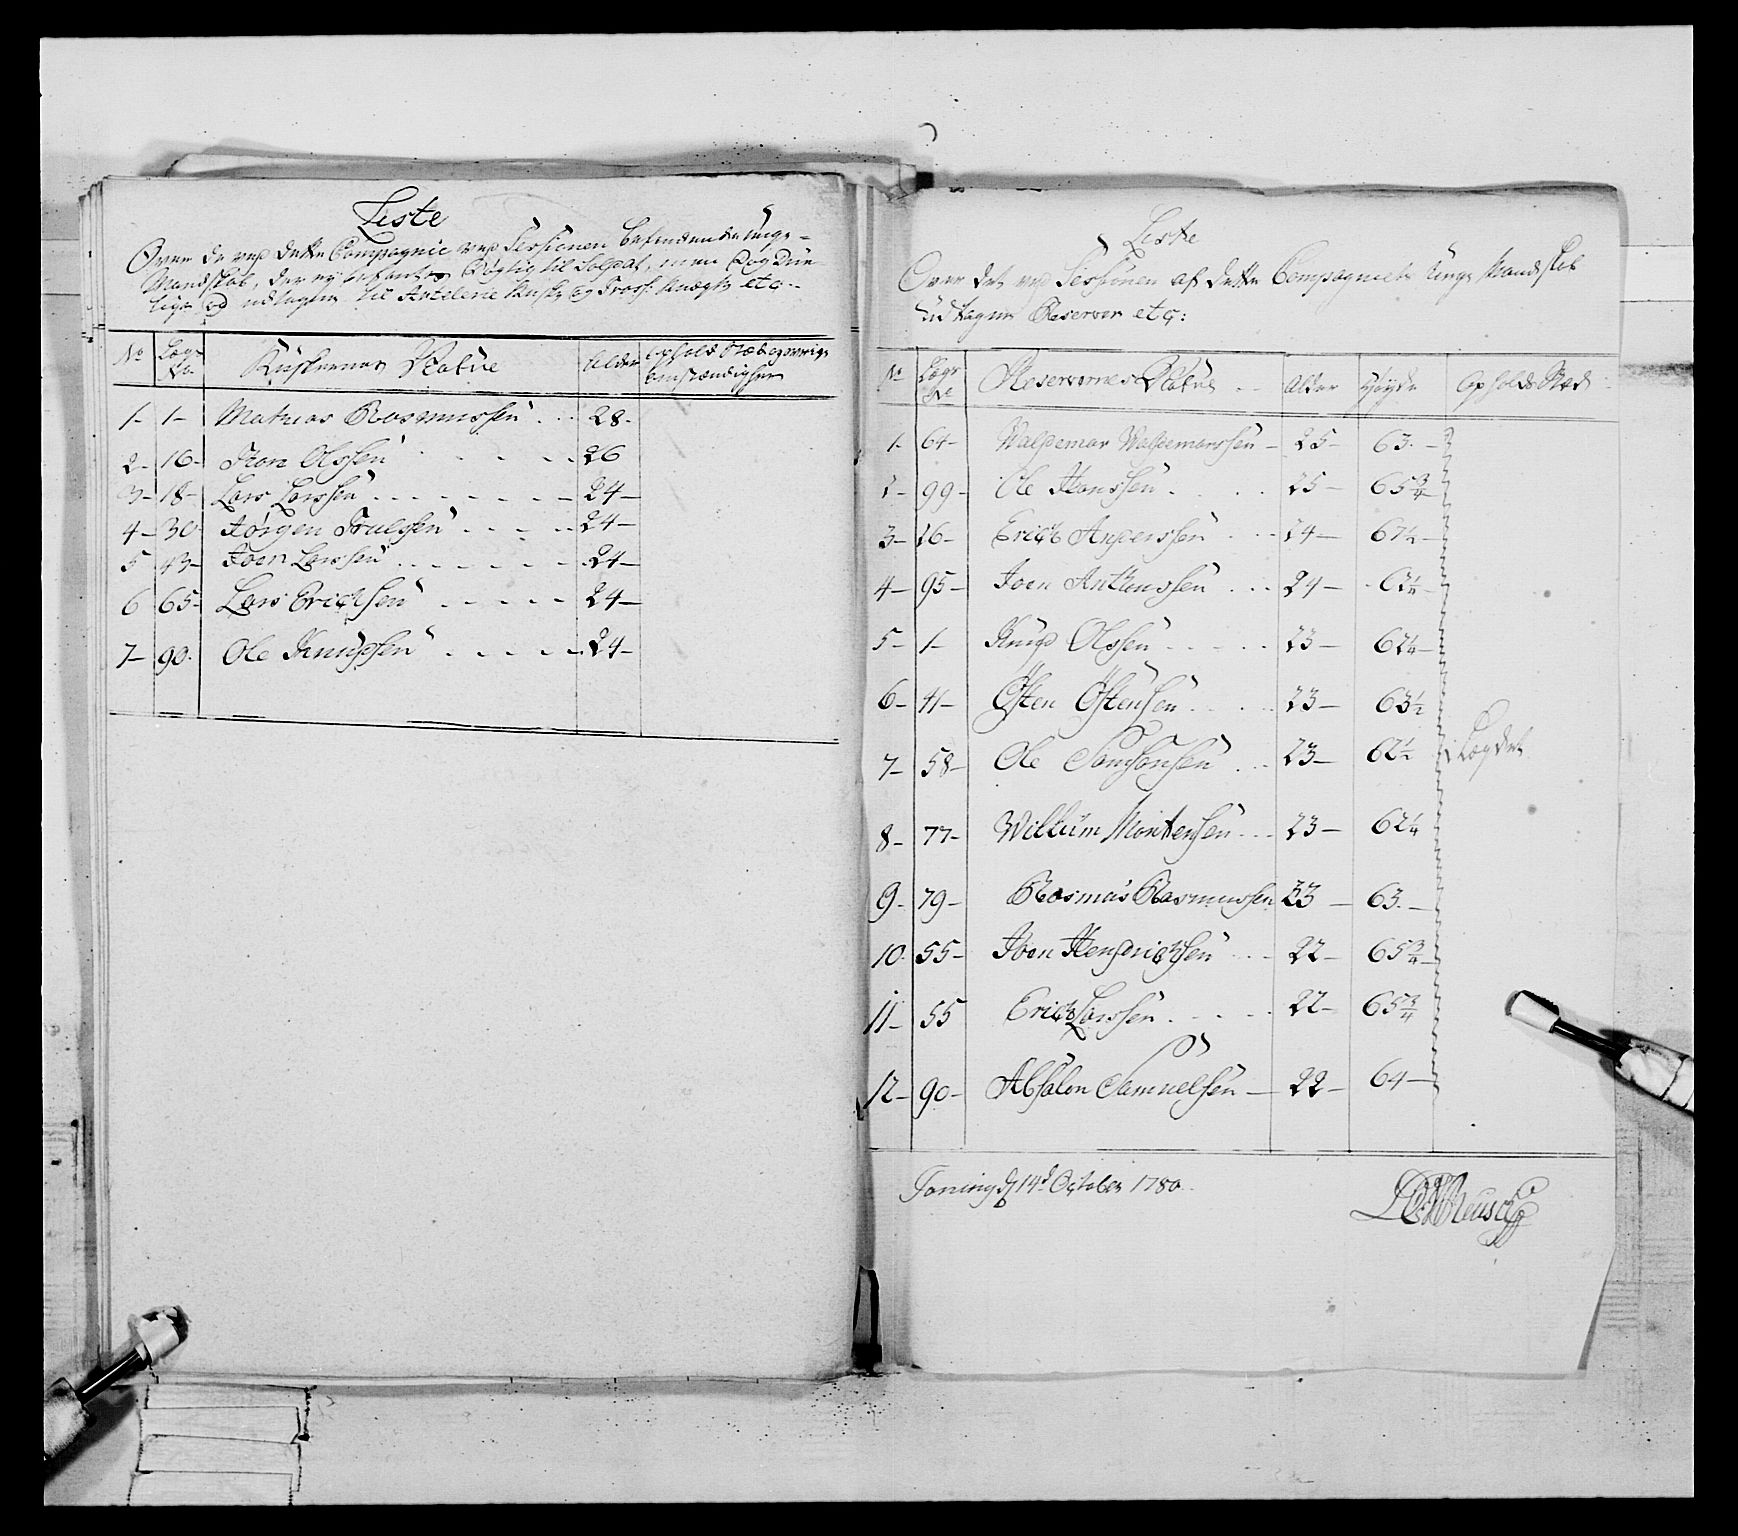 Liste
Over de ved dette Compagnie ved Sessionen befindende unge
Mandskab, der ey befantes dögtig til Soldat, men dog
udtagen til Artelerie Kuske og Tross Knægte etc:
No Lægs No Kuskernes Nafne Alder Opholds Stæd og øvrige Omstændigheder
1- 1- Mathias Rasmussen 28-
2- 16- Iton Olssen 26
3- 18- Lars Larssen 24-
4- 30- Jørgen Trulssen 24-
5 43- Joen Larssen 24-
6 65- Lars Erichsen 24-
7- 90- Ole Knudsen 24-
Liste
Over det ved Sessionen af dette Compagniets Unge Mandskab
udtagne Reserver etc:
No Lægs No Reservernes Nafne Alder Højde Opholds Stæd
1- 64- Waldemar Waldemarssen 25- 63-
2- 99- Ole Hanssen 25- 65 3/4
3- 26- Erich Anderssen 24- 67 1/4
4- 95- Joen Anthonssen 24- 62 1/4
5- 1- Knud Olssen 23- 62 1/4
6- 41- Østen Østensen 23- 63 1/2
7- 58- Ole Samsonsen 23- 62 1/2 i Lægdet
8- 77- Willum Mortensen 23- 62 1/4
9- 79- Rasmus Rasmussen 23- 63-
10- 55- Joen Hendrichsen 22- 65 3/4
11- 55 Erich Larssen 22- 65 3/4
12- 90- Absalon Samuelsen 22- 64-
Toning d 14d October 1780.